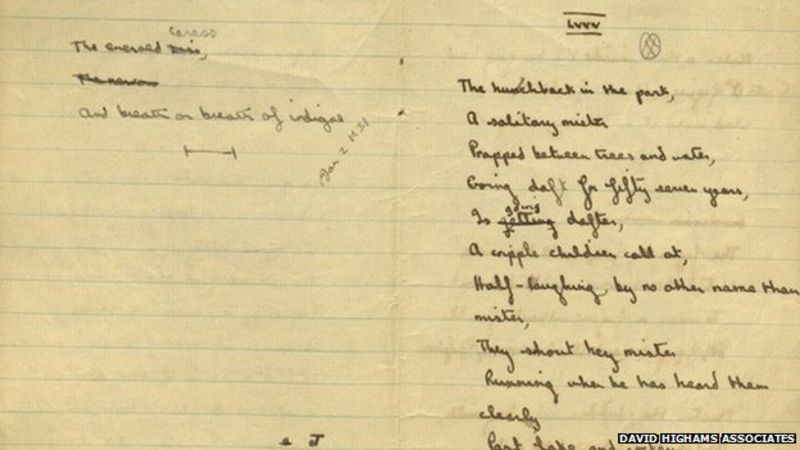 Caress
The emerald kiss,
The nervous
And breath on breath of indigoe
Jan 2 1931
LXXV
The hunchback in the park,
A solitary mister
Propped between trees and water,
Going daft for fifty seven years,
going
Is getting dafter,
A cripple children call at,
Half-laughing, by no other name than
mister,
They shout hey mister
Running when he has heard them
clearly
Past lake and
DAVID HIGHAMS ASSOCIATES